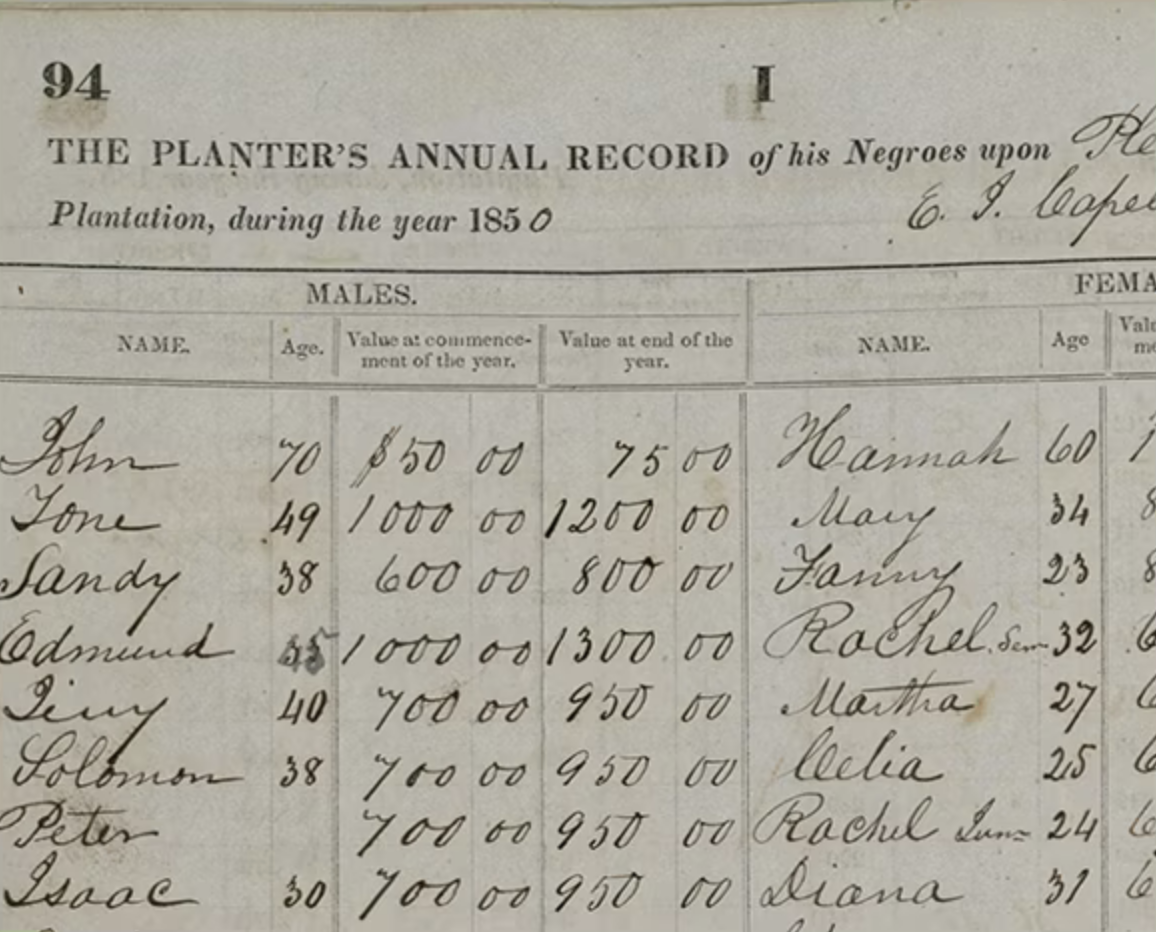 94 I
THE PLANTER'S ANNUAL RECORD of his Negroes upon
Plantation, during the year 1850 E. J.
MALES.
NAME. Age. Value at commence-ment of the year. Value at end of the year. NAME. Age
John 70 $50 00 75 00 Hannah 60
Tone 49 1000 00 1200 00 Mary 34
Sandy 38 600 00 800 00 Fanny 23
Edmund 1000 00 1300 00 Rachel Sen 32
40 700 00 950 00 Martha 27
Solomon 38 700 00 950 00 Celia 25
Peter 700 00 950 00 Rachel Junr 24
Isaac 30 700 00 950 00 Diana 31